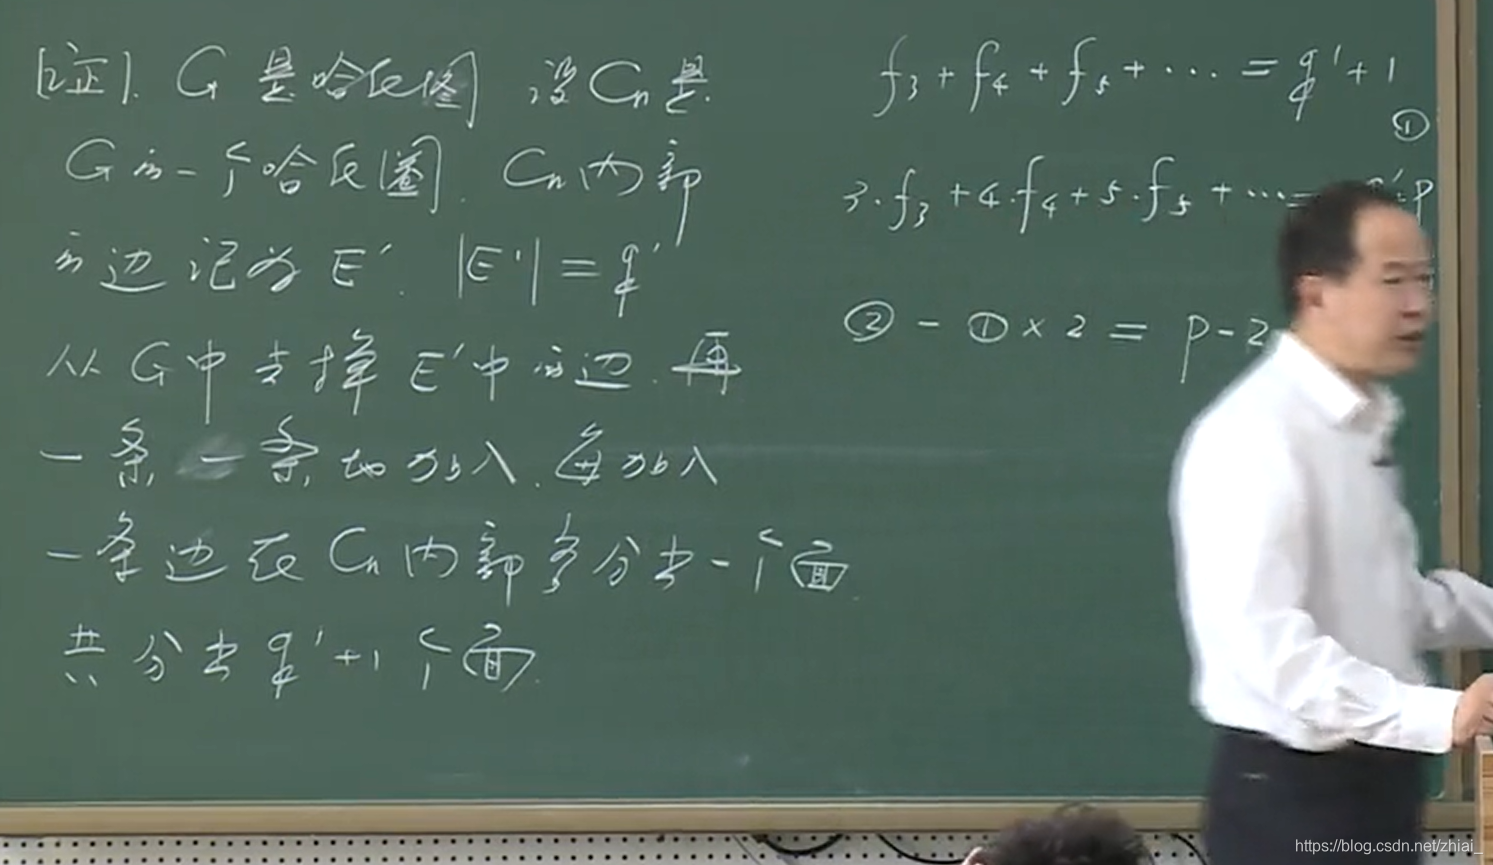 [证]. G 是哈氏图 设 Cn 是
G 的一个哈氏圈. Cn 内部
的边记为 E'. |E'| = q'
从 G 中去掉 E' 中的边. 再
一条一条地加入. 每加入
一条边在 Cn 内部多分出一个面.
共分出 q'+1 个面.
f₃ + f₄ + f₅ + ··· = q' + 1
①
3·f₃ + 4·f₄ + 5·f₅ + ··· = p
② - ① × 2 = p - 2
https://blog.csdn.net/zhiai_